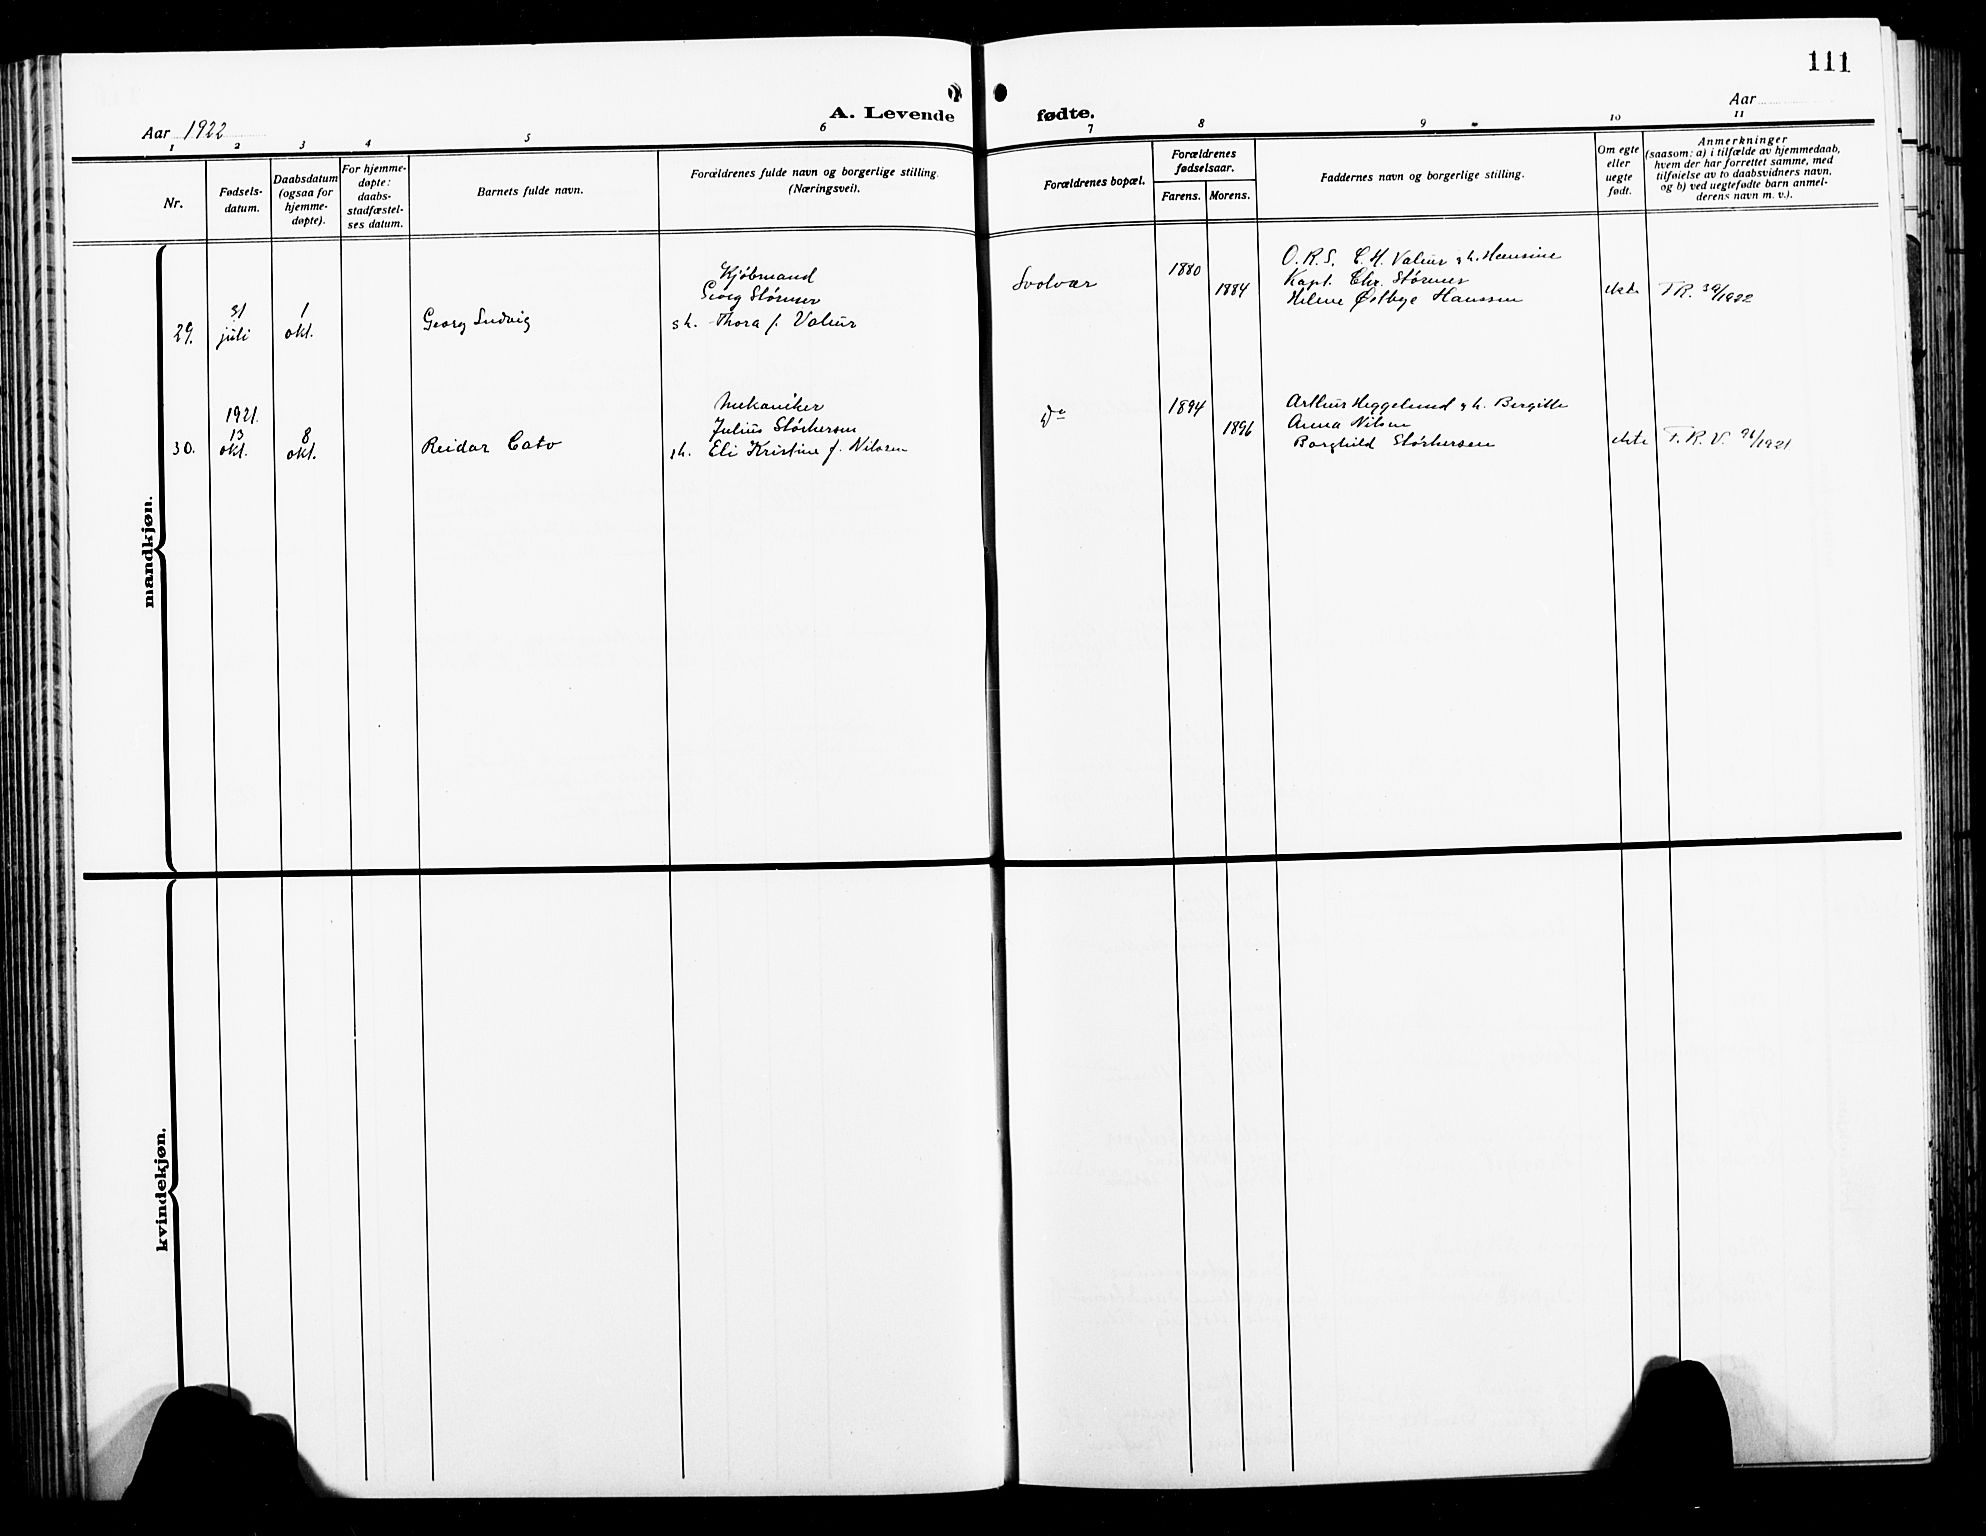 111
A. Levende fødte.
Aar 1922
Aar
1 2 3 4 5 6 7 8 9 10 11
Nr.
Fødsels-
datum.
Daabsdatum
(ogsaa for
hjemme-
døpte).
For hjemme-
døpte:
daabs-
stadfæstel-
ses datum.
Barnets fulde navn.
Forældrenes fulde navn og borgerlige stilling.
(Næringsvei).
Forældrenes bopæl.
Forældrenes
fødselsaar.
Farens. Morens.
Faddernes navn og borgerlige stilling.
Om egte
eller
uegte
født.
Anmerkninger
(saasom: a) i tilfælde av hjemmedaab,
hvem der har forrettet samme, med
tilføielse av to daabsvidners navn,
og b) ved uegtefødte barn anmel-
derens navn m. v.).
mandkjøn.
29.
31
juli
1
okt.
Georg Ludvig
Kjøbmand
Georg Størmer
h. Thora f. Valeur
Svolvær
1880
1884
O. R. S. C. H. Valeur h. Hansine
Kapt. Chr. Størmer
Helene Østbye Hanssen
ekte
F.R. 39/1922
30.
1921.
13
okt.
8
okt.
Reidar Cato
Mekaniker
Julius Størkersen
h. Eli Kristine f. Nilsen
do
1894
1896
Arthur Heggelund h. Bergitte
Anna Nilsen
Borghild Størkersen
ekte
F.R.V. 96/1921
kvindekjøn.